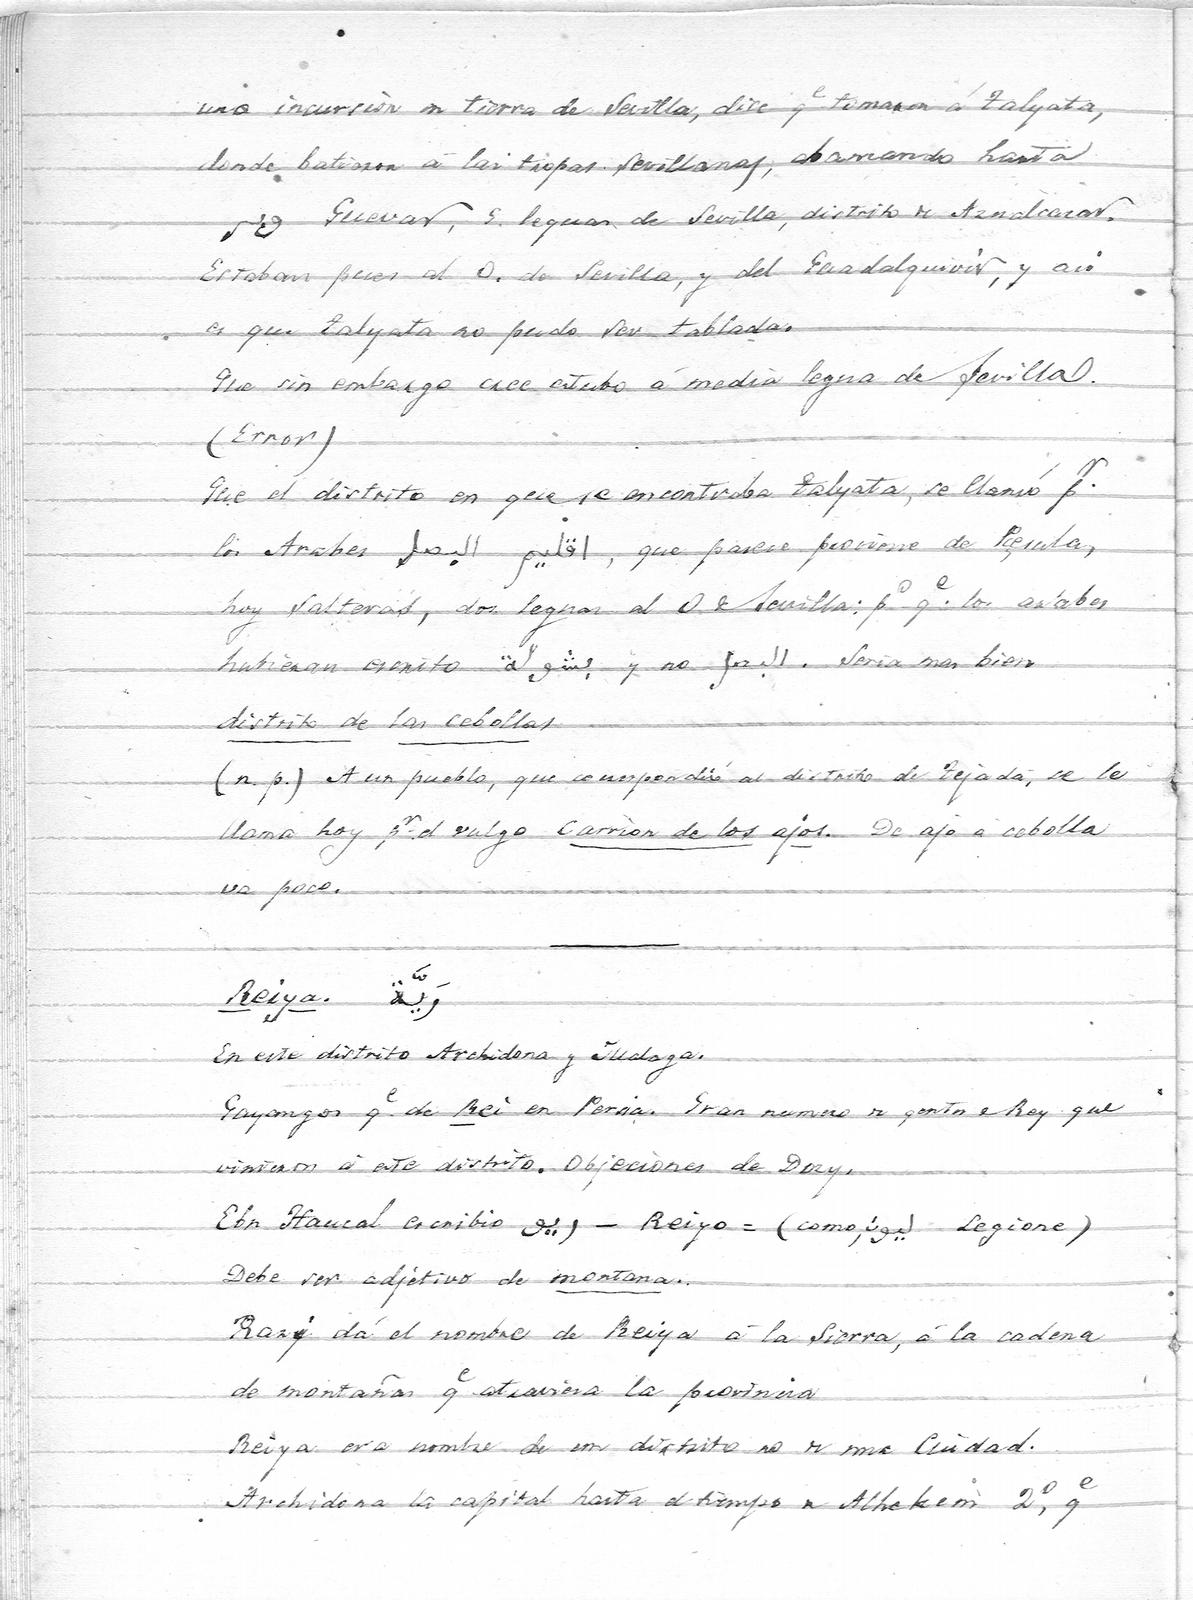 una incursión en tierra de Sevilla, dice qe tomaron á Talyata,
donde batieron á las tropas Sevillanas, avanzando hasta
Guevar, 5. leguas de Sevilla, distrito de Aznalcazar.
Estaban pues al O. de Sevilla, y del Guadalquivir, y asi
es que Talyata no pudo ser Tablada.
Que sin embargo cree estubo á media legua de Sevilla.
(Error)
Que el distrito en que se encontraba Talyata, se llamó pr.
los Arabes اقليم البصل, que parece proviene de Pesula,
hoy Salteras, dos leguas al O de Sevilla: po qe. los arabes
hubieran escrito بشولة y no البصل. Seria mas bien
distrito de las cebollas
(n. p.) A un pueblo, que correspondió al distrito de Tejada, se le
llama hoy pr. el vulgo Carrion de los ajos. De ajo á cebolla
va poco.
Reiya. رَيّة
En este distrito Archidona y Malaga.
Gayangos qe de Rei en Persia. Gran numero de gentes de Rey que
vinieron á este distrito. Objeciones de Dozy.
Ebn Haucal escribio ريو – Reiyo = (como ليون, Legione)
Debe ser adjetivo de montana.
Razy dá el nombre de Reiya á la Sierra, á la cadena
de montañas qe atraviesa la provincia
Reiya era nombre de un distrito no de una Ciudad.
Archidona la capital hasta el tiempo de Alhakem 2º, qe